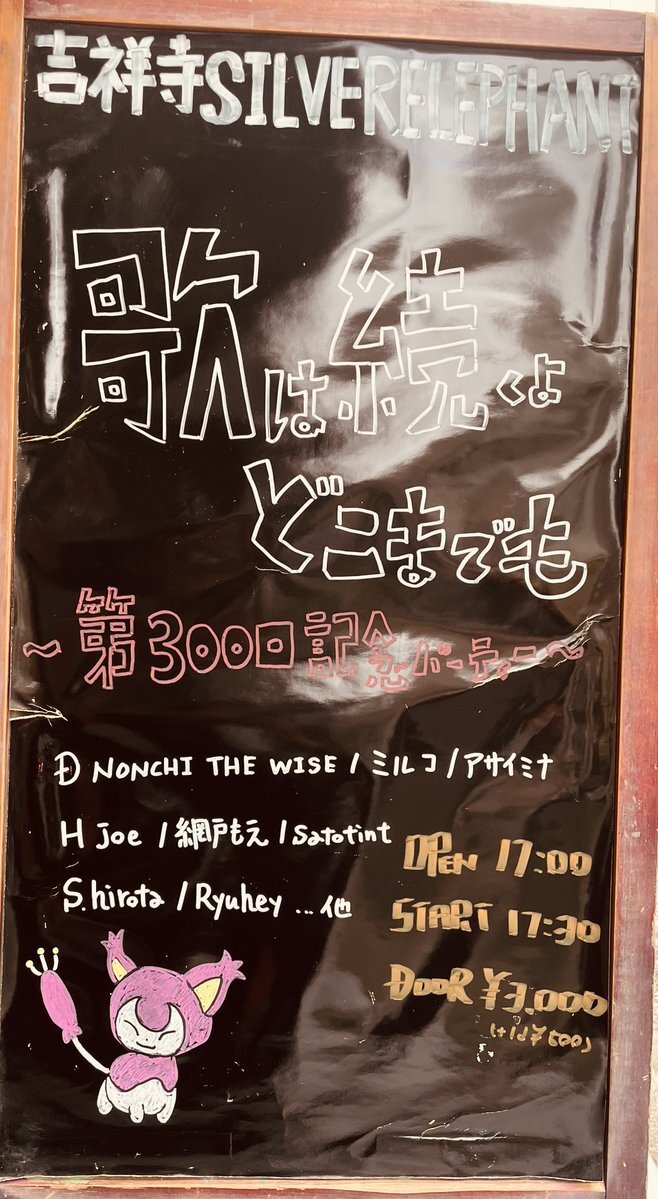 吉祥寺SILVERELEPHANT
歌は続くよ
どこまでも
〜第300回記念パーティー〜
Đ NONCHI THE WISE / ミルコ / アサイミナ
H Joe / 網戸もえ / Satotint
S.hirota / Ryuhey ... 他
OPEN 17:00
START 17:30
DOOR ¥3,000
(+1d¥600)